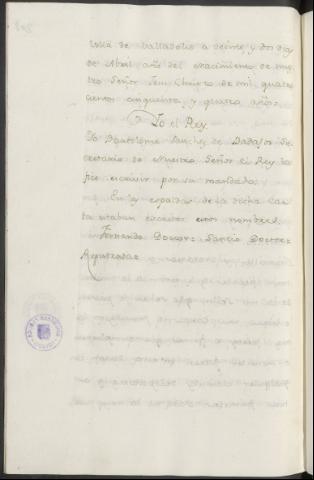 Villa de Valladolid a veinte y dos dias
de Abril año del nacimiento de nues
tro Señor Jesu Christo de mil quatro
cientos cinquenta, y quatro años.
Yo el Rey
Yo Bartolome Sanchez de Badajoz Se
cretario de Nuestro Señor el Rey la
fice escrivir por su mandado.
En las espaldas de la dicha Car
ta estaban escritos estos nombres.
Fernando Doctor: Sancio Doctor:
Registrada: